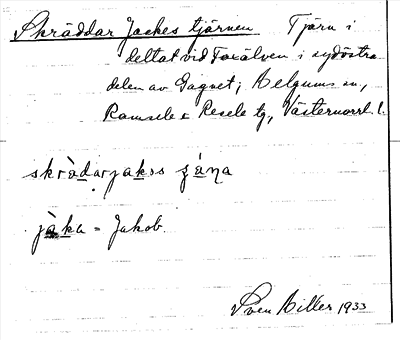 Skräddar Jackes tjärnen Tjärn i
deltat vid Faxälven i sydöstra
delen av Gagnet; Helgums sn,
Ramsele & Resele tg, Västernorrl. l.
skrɑ̀darjakɷs ʒáɳa
jàka = Jakob.
Sven Hiller 1933